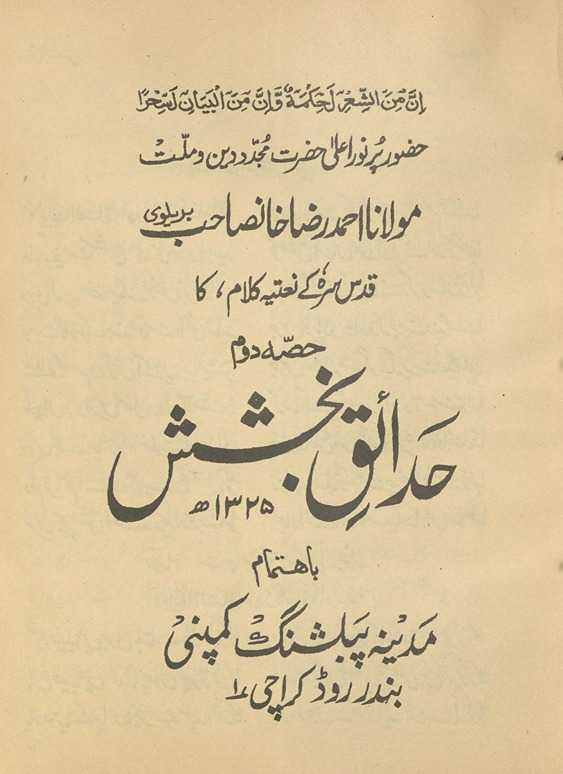 اِنَّ مِنَ الشِّعْرِ لَحِكْمَةً وَّاِنَّ مِنَ الْبَيَانِ لَسِحْرًا
حضور پُر نور اعلیٰ حضرت مُجدّدِ دین و ملّت
مولانا احمد رضا خانصاحب بریلوی
قدس سرہٗ کے نعتیہ کلام، کا
حصّہ دوم
حَدائقِ بخشش
۱۳۲۵ھ
باہتمام
مدینہ پبلشنگ کمپنی
بندر روڈ کراچی ۱؎